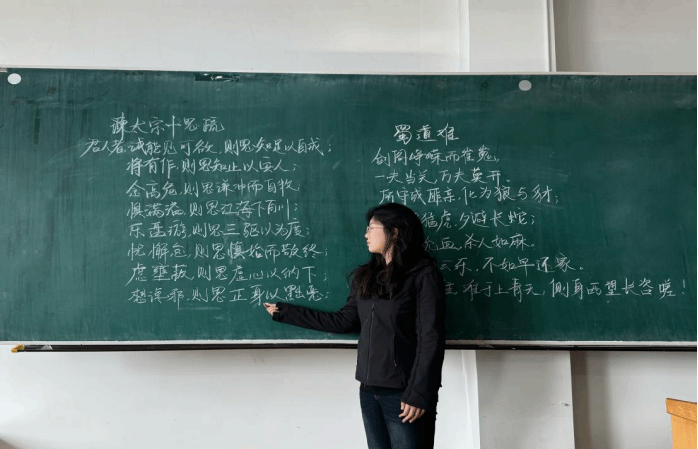 谏太宗十思疏
君人者,诚能见可欲,则思知足以自戒;
将有作,则思知止以安人;
念高危,则思谦冲而自牧;
惧满溢,则思江海下百川;
乐盘游,则思三驱以为度;
忧懈怠,则思慎始而敬终;
虑壅蔽,则思虚心以纳下;
想谗邪,则思正身以黜恶;
蜀道难
剑阁峥嵘而崔嵬,
一夫当关,万夫莫开。
所守或匪亲,化为狼与豺;
猛虎,夕避长蛇;
血,杀人如麻。
云乐,不如早还家。
难于上青天,侧身西望长咨嗟!